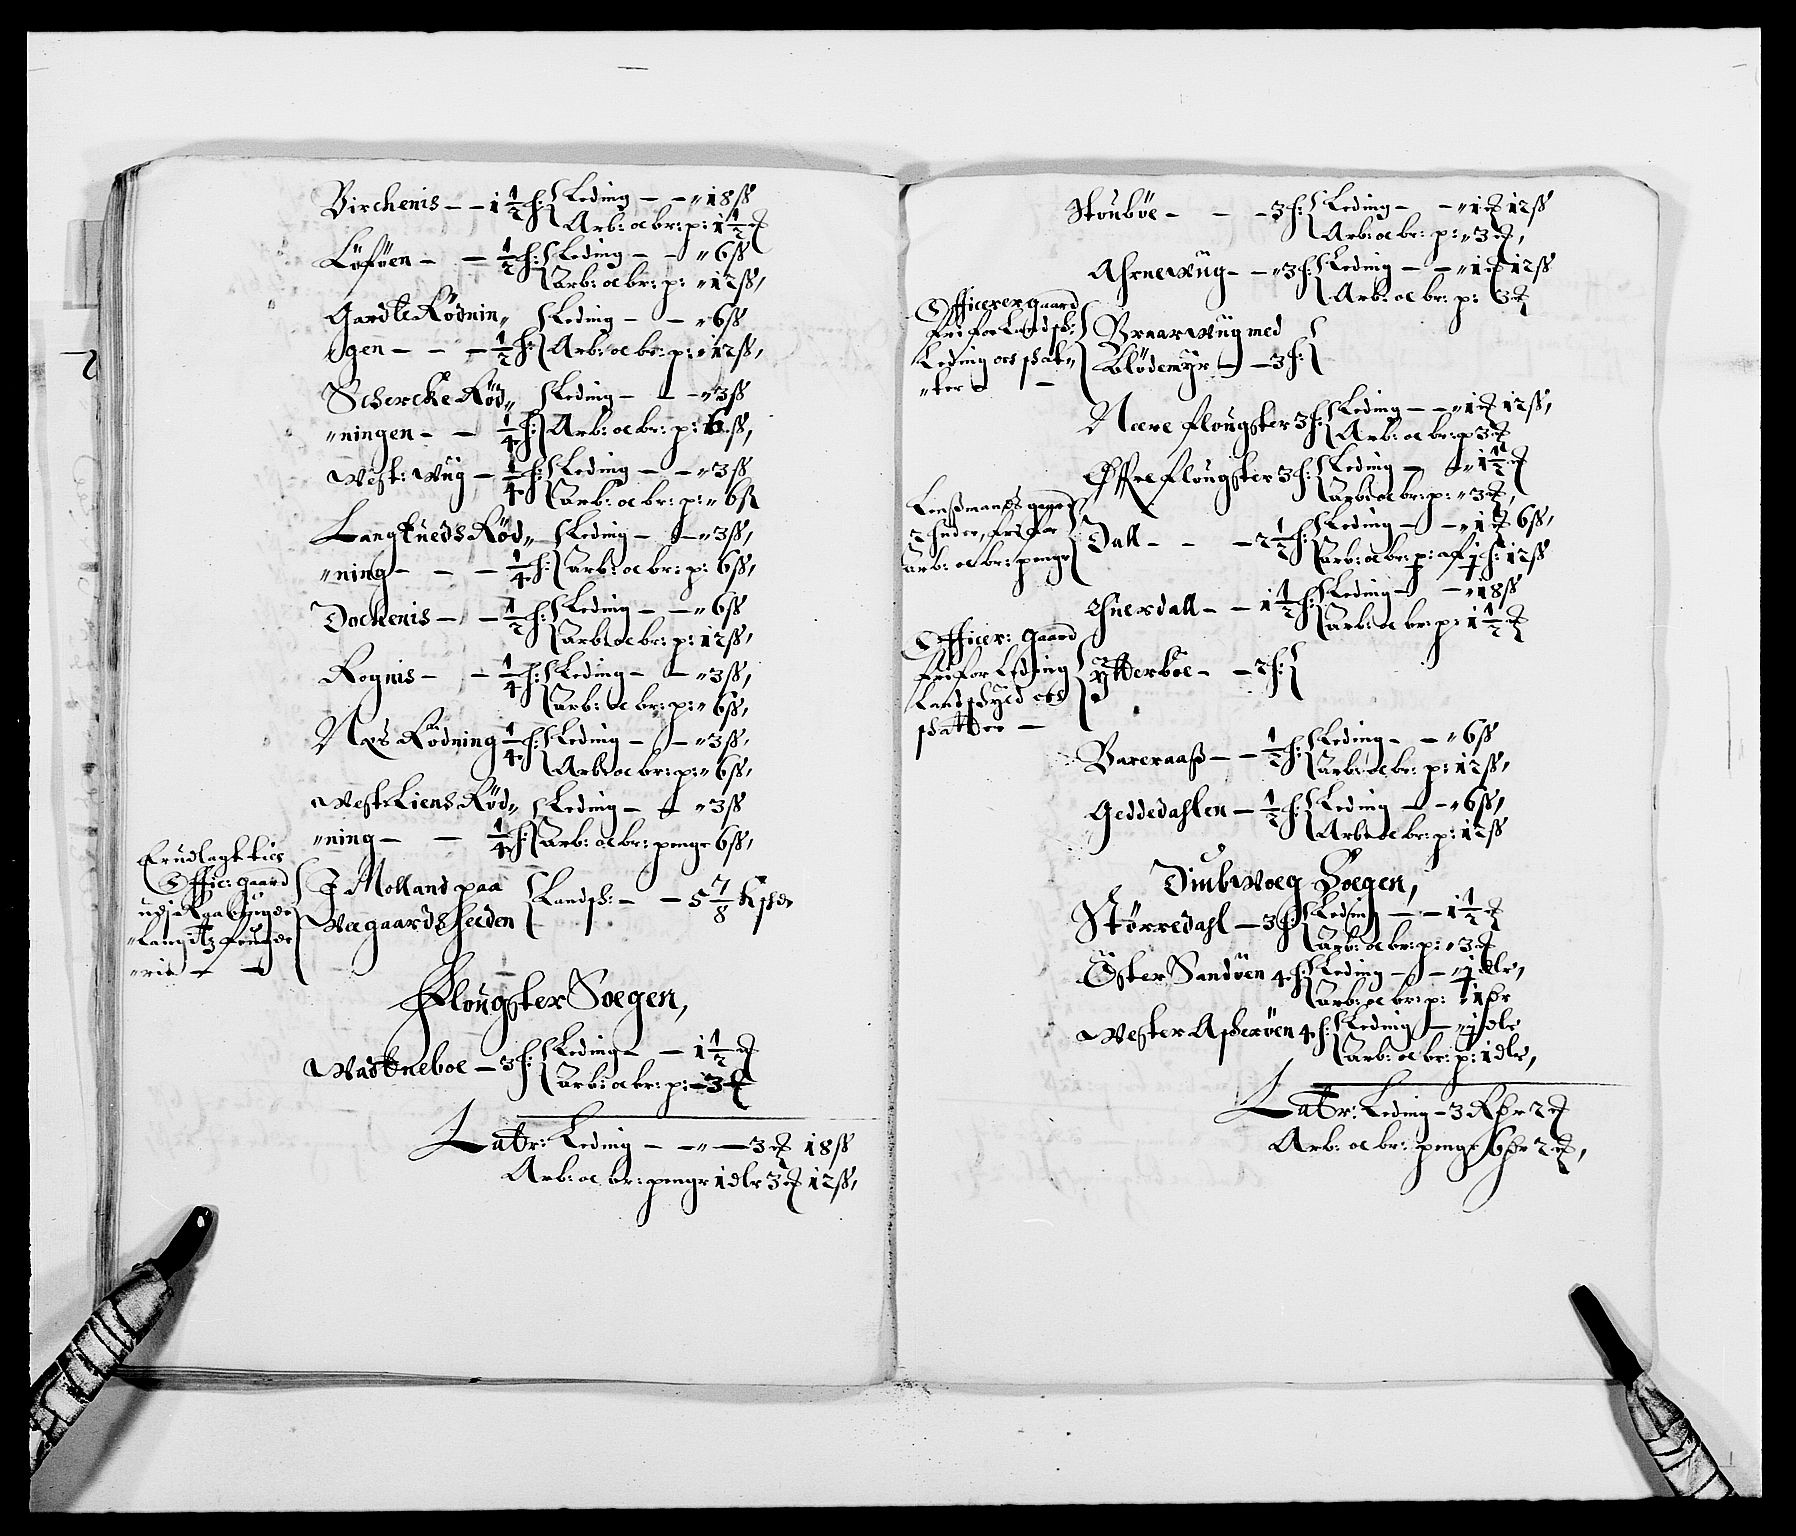 Birchenis – – 1 1/2 h: Leding – – " 18 ß
Arb: oc br: p: 1 1/2 #
Löföen – – 1/2 h: Leding – – " 6 ß
Arb: oc br: p: " 12 ß,
Gardte Rödnin" Leding – – " 6 ß
"gen – – – 1/2 h: Arb: oc br: p: " 12 ß,
Schercke Röd" Leding – – " 3 ß
"ningen – – 1/4 h: Arb: oc br: p: 6 ß,
West: Wug – 1/4 h: Leding – – " 3 ß
Arb: oc br: p: " 6 ß
Langtueds Röd" Leding – – " 3 ß,
"ning – – – 1/4 h: Arb: oc br: p: 6 ß,
Dochenis – – 1/2 h: Leding – – " 6 ß
Arb: oc br: p: 12 ß,
Rognis – – 1/4 h: Leding – – " 3 ß,
Arb: oc br: p: " 6 ß,
Nes Rödning 1/4 h: Leding – – " 3 ß,
Arb: oc br: p: " 6 ß,
West: Liens Röd" Leding – – " 3 ß
"ning – – 1/4 h: Arb: oc br: penge 6 ß,
Er udlagt til
Offic: gaard
udj
Lang
"rie – –
J Molland paa Landsk: – – 5 7/8
Wegaards heeden
Flougster Soegen,
Wastneboe – 3 h: Leding – – 1 1/2 #
Arb: oc br: p: – 3 #
Latr: Leding – – " – 3 # 18 ß
Arb: oc br: penge 1 dlr 3 # 12 ß,
Stouböe – – – 3 h: Leding – – " 1 # 12 ß
Arb: oc br: p: " 3 #,
Ahrnewug – – " 3 h: Leding – – " 1 # 12 ß
Arb: oc br: p: 3 #
Officerer gaard
fri for Landsk:
Leding och skat"
"ter – –
Braarwug med
Blödemyr – – 3 h:
Nære flougster 3 h: Leding – – " 1 # 12 ß,
Arb: oc br: p 3 #
Øffre flougster 3 h: Leding – – " 1 1/2 #
Arb: oc br: p: " 3 #,
Lensmands gaard
2 huder, fri for
Arb: oc br: penge
Dall – – – 2 1/2 h: Leding – – " 1 # 6 ß,
Arb: oc br: p: af 1/2 h: 12 ß
Huerdall – – 1 1/2 h: Leding – – " 18 ß
Arb: oc br: p: 1 1/2 #
Officer: gaard
fri for Leding
Landskyld och
skatter –
Ytterböe – – 2 h:
Bareraaß – – 1/2 h: Leding – – " 6 ß
Arb: oc br: p: 12 ß,
Geddedahlen – 1/2 h: Leding – – " 6 ß,
Arb: oc br: p: 12 ß
Diubwoeg Soegen,
Størredahl – 3 h: Leding – – 1 1/2 #
Arb: oc br: p: " 3 #
Öster Sandöen 4 h: Leding – – " 1/2 dlr,
Arb: oc br: p: 1
Wester Asperöen 4 h: Leding – – " 1/2 dlr
Arb: oc br: p: 1 dlr,
Latr: Leding – 3 2 #
Arb: oc br: penge 6 2 #,